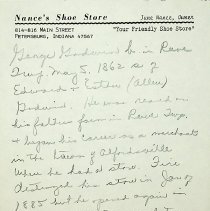 Nance's Shoe Store
Jake Nance, Owner
814-816 Main Street
Petersburg, Indiana 47567
"Your Friendly Shoe Store"
George Godwin b in Reeve
Twp, May 5, 1862 s of
Edward & Esther (Allen)
Godwin. He was reared on
his fathers farm in Reeve Twp.
& began his career as a merchant
in the town of Alfordsville
when he had a store. Fire
destroyed his store in Jan of
1885 but he opened again in